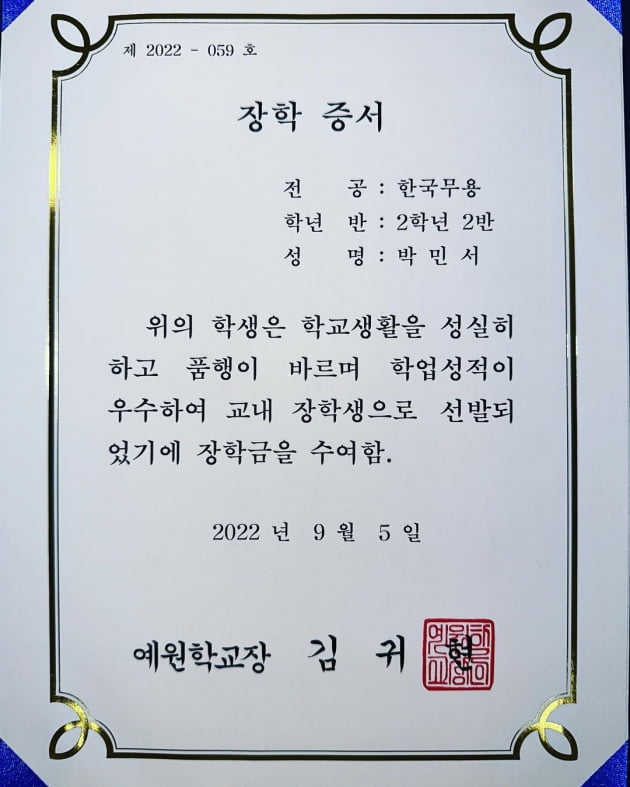 제 2022 - 059 호
장학 증서
전 공 : 한국무용
학년 반 : 2학년 2반
성 명 : 박 민 서
위의 학생은 학교생활을 성실히
하고 품행이 바르며 학업성적이
우수하여 교내 장학생으로 선발되
었기에 장학금을 수여함.
2022 년 9 월 5 일
예원학교장 김 귀 현